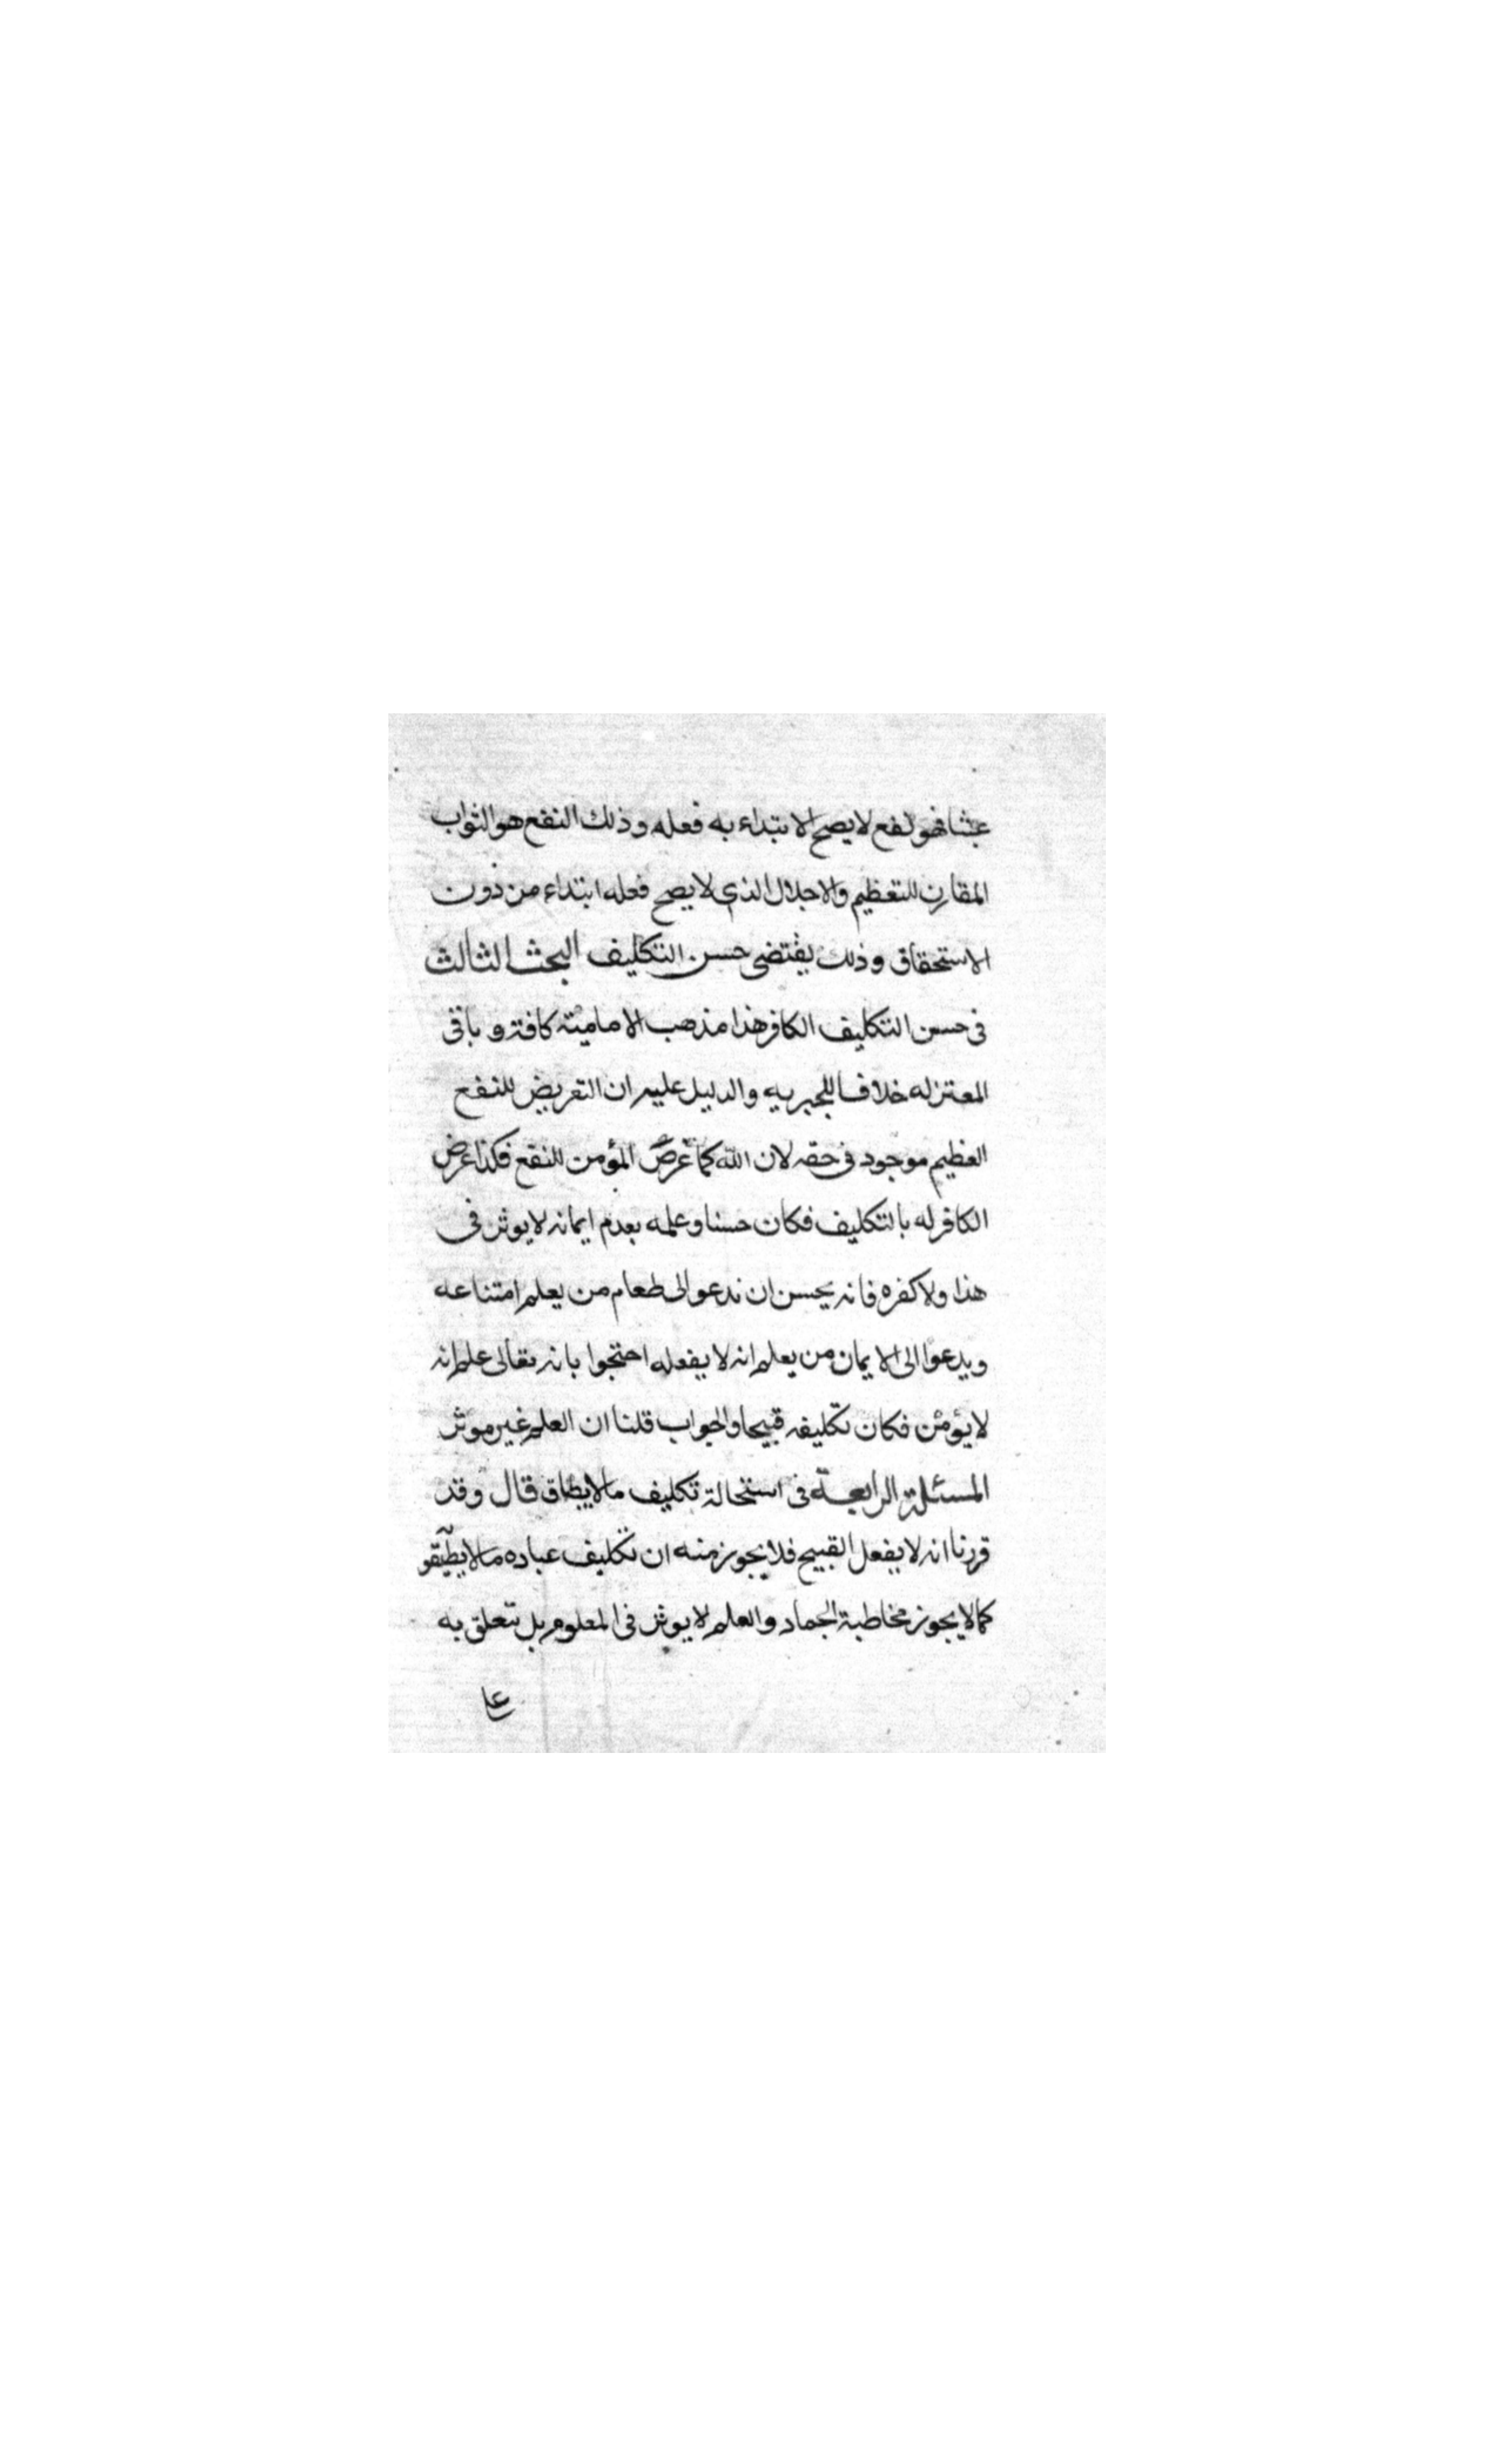 عبثا فهو لنفع لا يصح الابتداء به فعله وذلك النفع هو الثواب
المقارن للتعظيم والاجلال الذي لا يصح فعله ابتداء من دون
الاستحقاق وذلك يقتضى حسن التكليف البحث الثالث
فى حسن التكليف الكافر هذا مذهب الامامية كافة و باقى
المعتزله خلافا للجبريه والدليل عليه ان التعريض للنفع
العظيم موجود فى حقه لان الله كما عرض المؤمن للنفع فكذا عرض
الكافر له بالتكليف فكان حسنا وعلمه بعدم ايمانه لا يوثر فى
هذا ولا كفره فانه يحسن ان ندعو الى طعام من يعلم امتناعه
ويدعوا الى الايمان من يعلم انه لا يفعله احتجوا بانه تعالى علم انه
لا يؤمن فكان تكليفه قبيحا والجواب قلنا ان العلم غير موثر
المسئلة الرابعة فى استحالة تكليف ما لا يطاق قال وقد
قررنا انه لا يفعل القبيح فلا يجوز منه ان تكليف عباده ما لا يطيقو
كما لا يجوز مخاطبة الجماد والعلم لا يوثر فى المعلوم بل تتعلق به